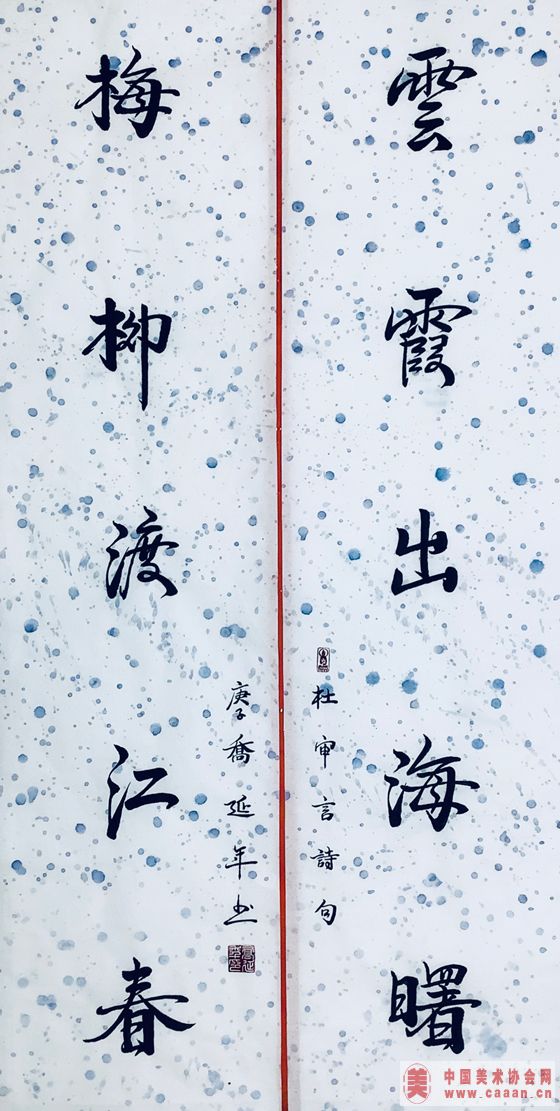 雲霞出海曙
杜审言詩句
梅柳渡江春
庚子喬延年书
美
中国美术协会网
www.caaan.cn